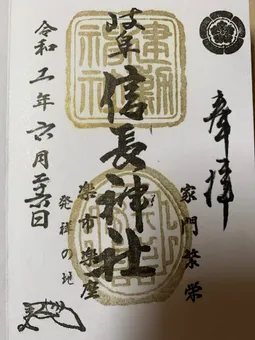 奉拝
家門繁栄
岐阜信長神社
楽市楽座
発祥の地
令和五年六月二十六日
建勲
神社